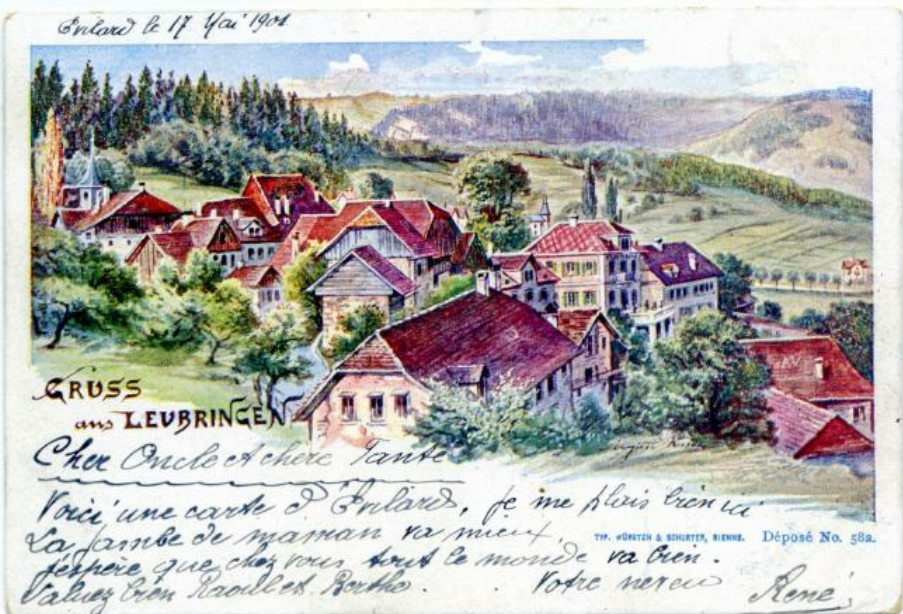 Evilard le 17 Mai 1901
GRUSS
aus LEUBRINGEN
Cher Oncle et chère Tante
Voici une carte d'Evilard, je me plais bien ici
La jambe de maman va mieux
TYP. WÜRSTEN & SCHURTER, BIENNE. Déposé No. 58a.
j'espère que chez vous tout le monde va bien.
Saluez bien Raoul et Berthe. Votre neveu
René.